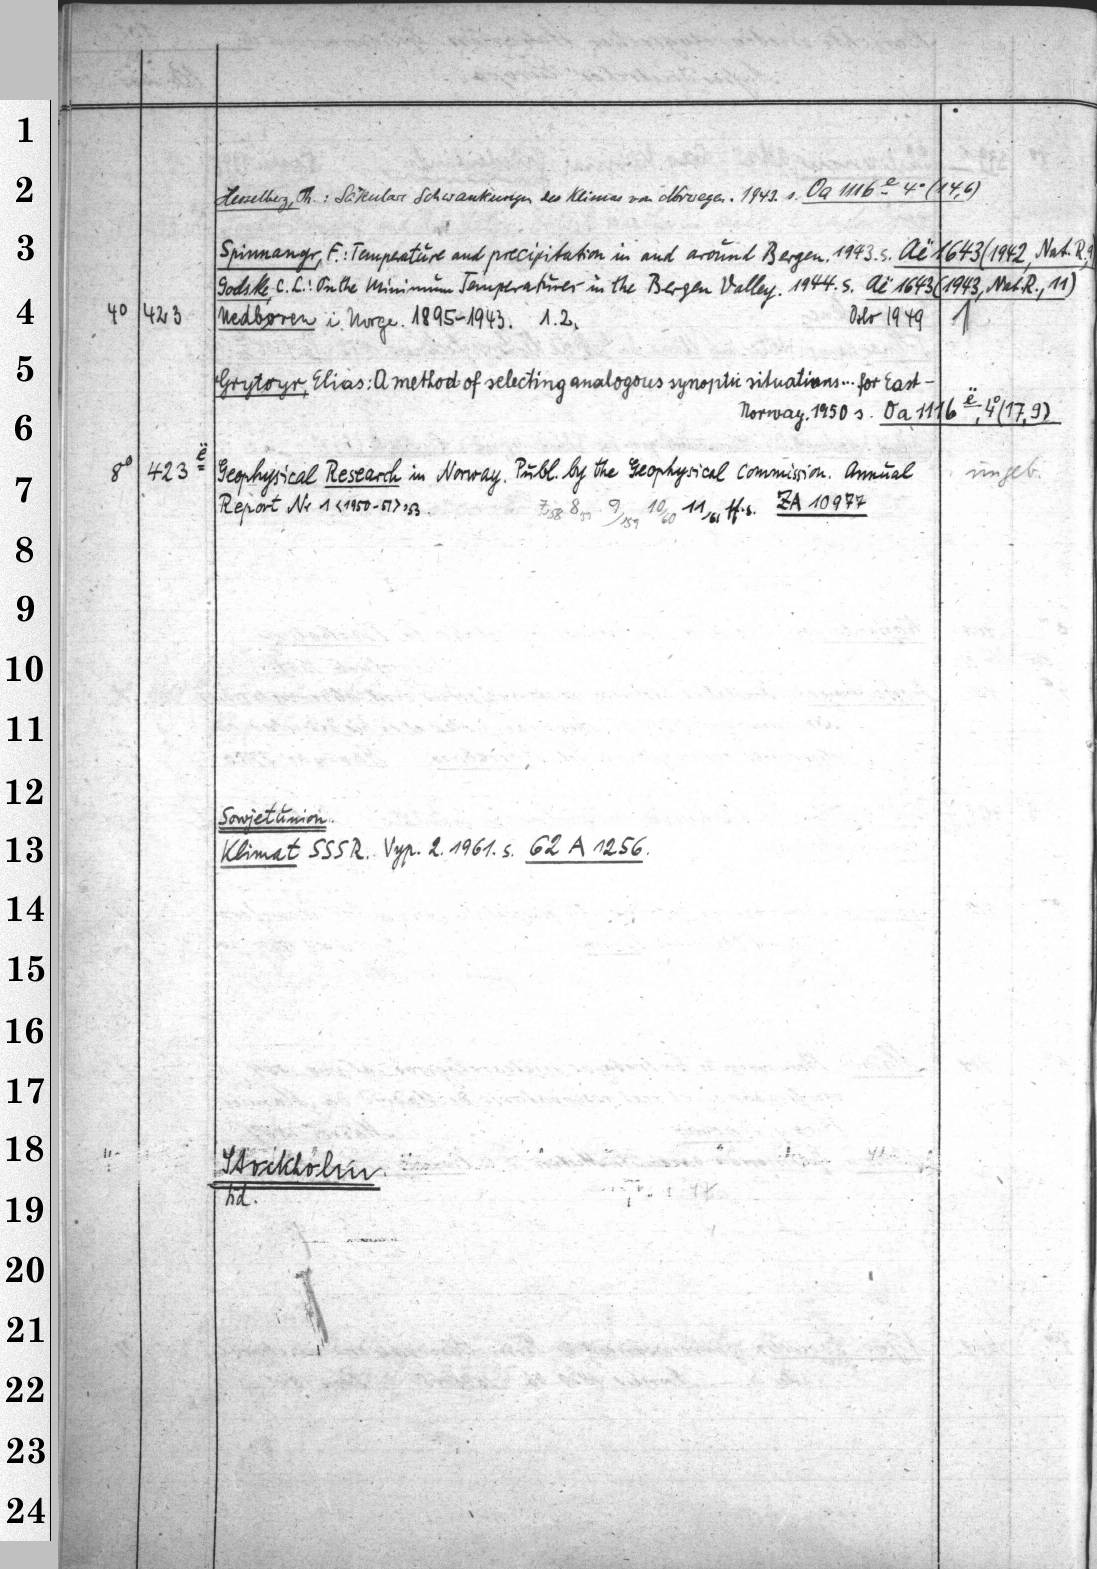 1
2
Hesselberg, Th.: Säkulare Schwankungen des Klimas von Norwegen. 1943. s. Oa 1116 e 4° (14,6)
3
Spinnangr, F.: Temperature and precipitation in and around Bergen. 1943. s. Aë 1643 (1942, Nat. R, 9)
Godske, C. L.: On the Minimum Temperatures in the Bergen Valley. 1944. s. Aë 1643 (1943, Nat. R., 11)
4
4° 423 Nedbøren i Norge. 1895-1943. 1.2. Oslo 1949 1
5
Grytøyr, Elias: A method of selecting analogous synoptic situations... for East-
Norway. 1950 s. Oa 1116 ë, 4° (17,9)
6
7
8° 423 ë Geophysical Research in Norway. Publ. by the Geophysical Commission. Annual ungeb.
Report Nr 1 <1950-51> 53. 7,58 8,59 9/159 10/60 11/61 ff. s. ZA 10977
8
9
10
11
12
Sowjetunion.
13
Klimat SSSR. Vyp. 2. 1961. s. 62 A 1256.
14
15
16
17
18
Stockholm
19
20
21
22
23
24